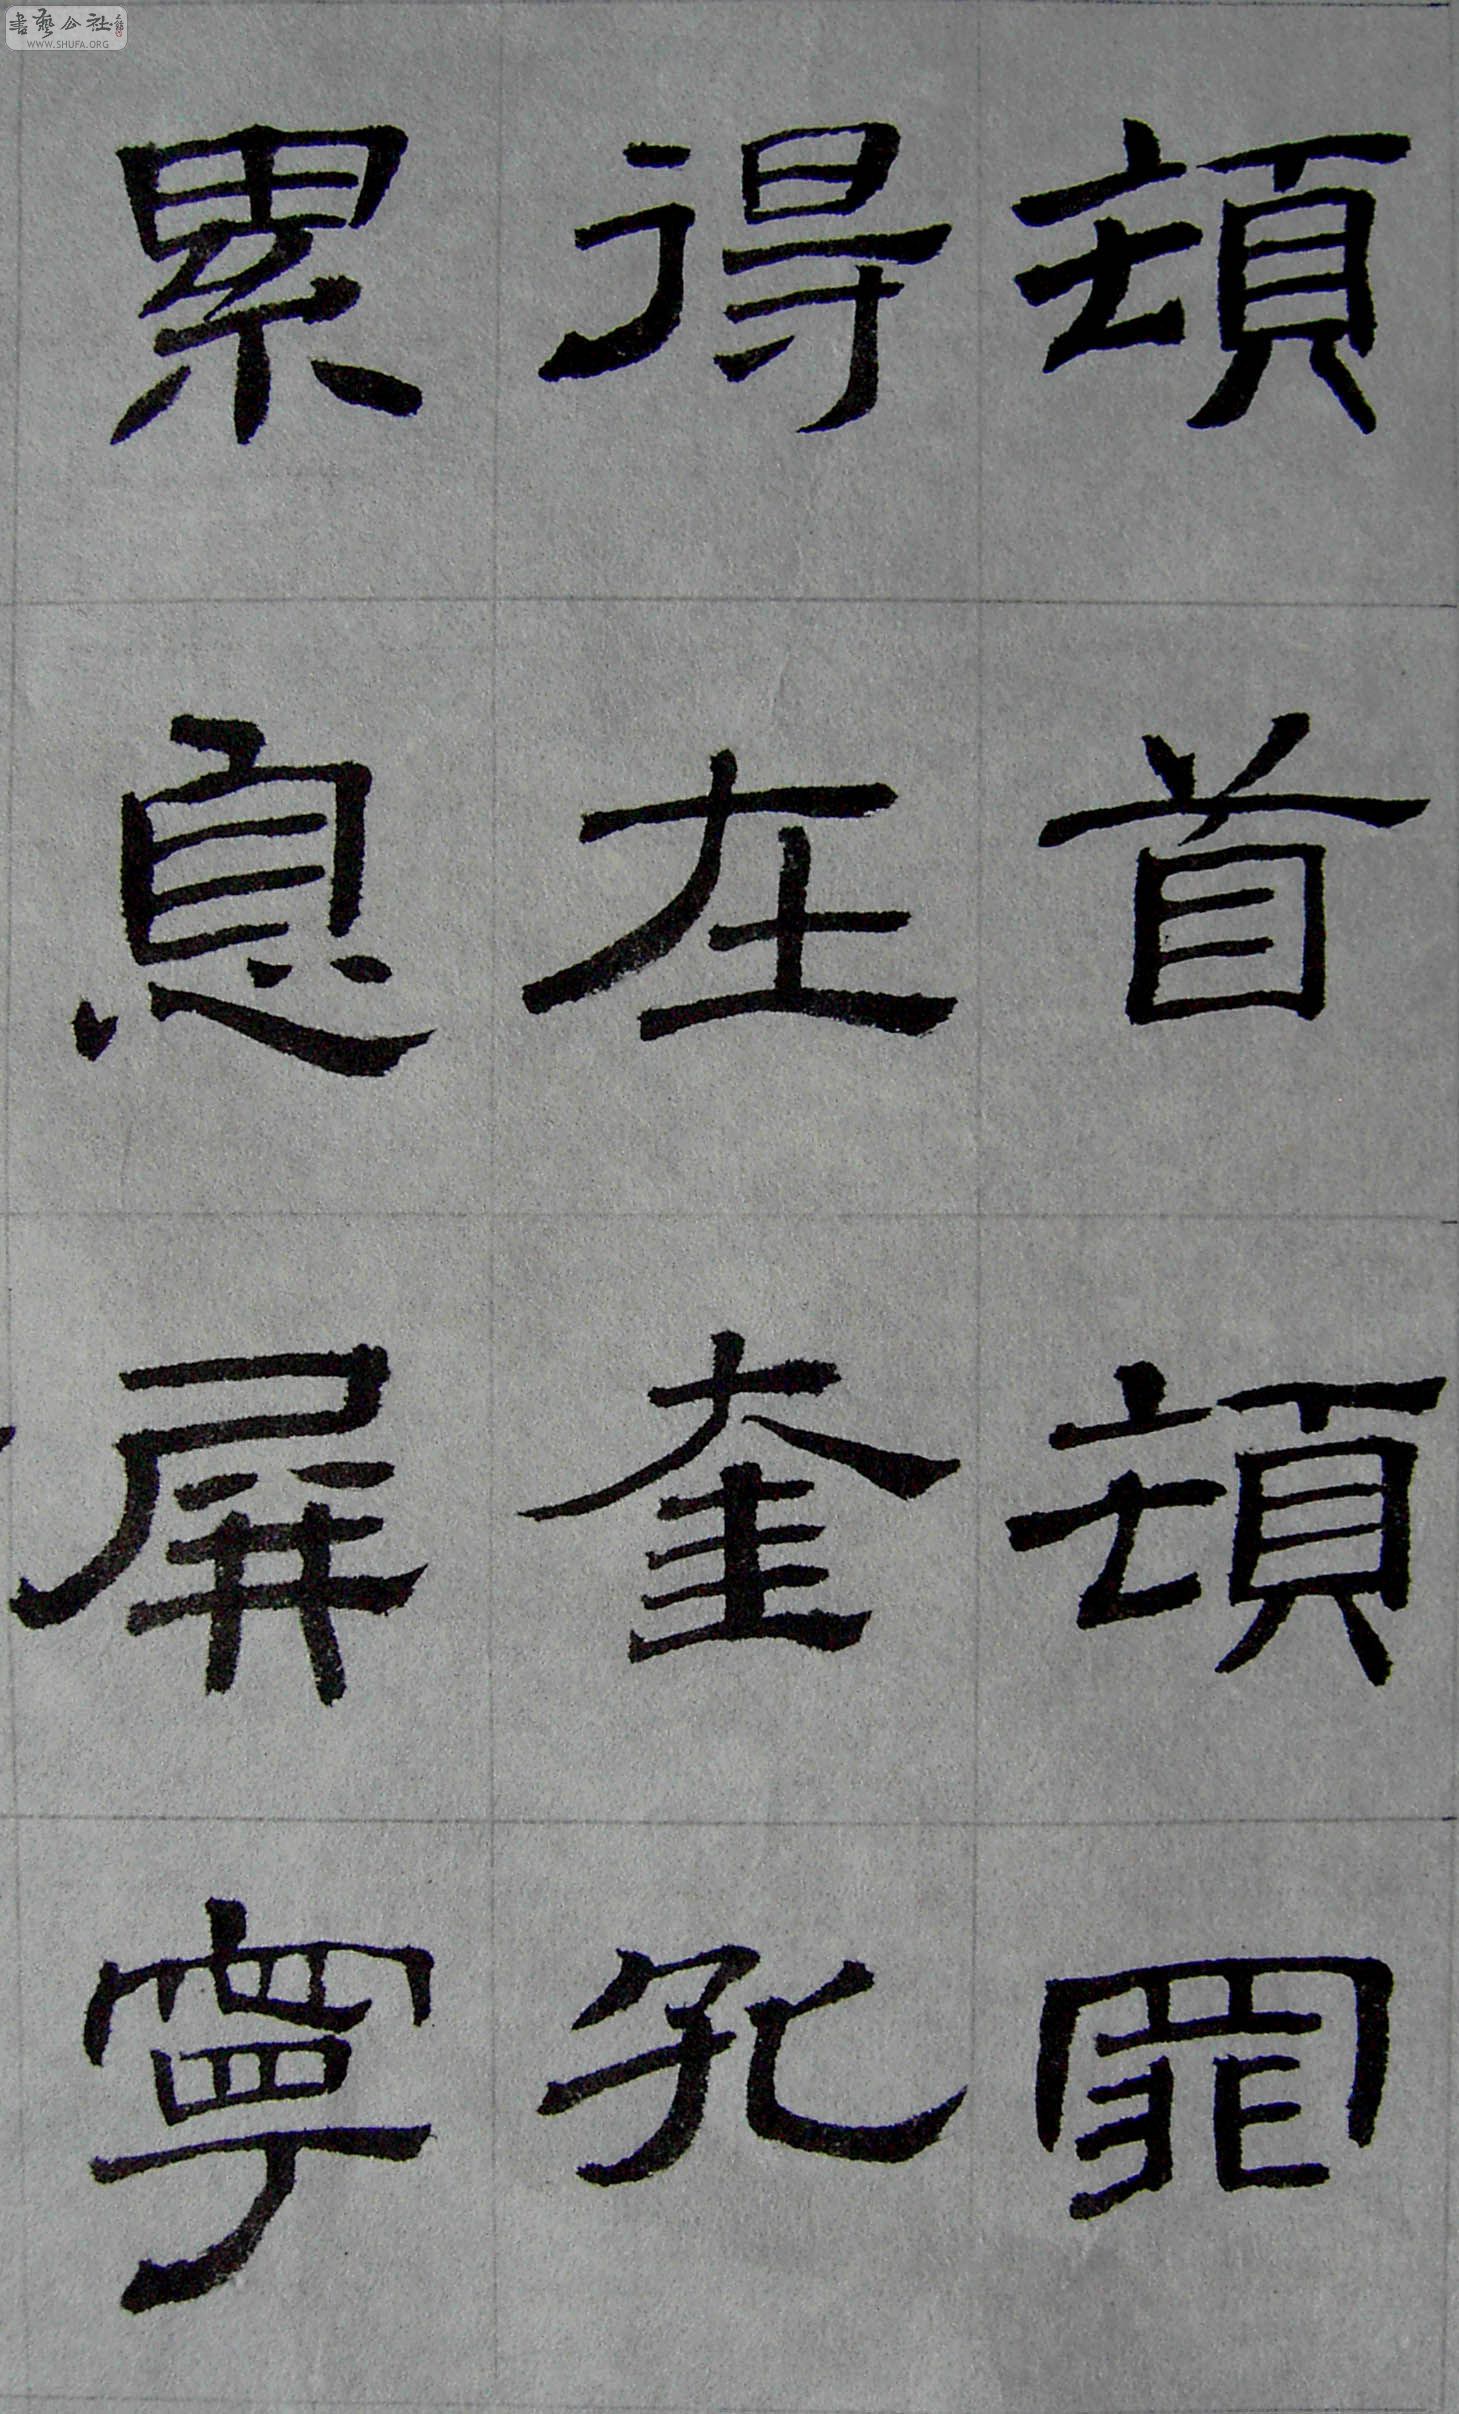 頓首頓罪
得在奎孔
累息屏寧
書藝公社
WWW.SHUFA.ORG